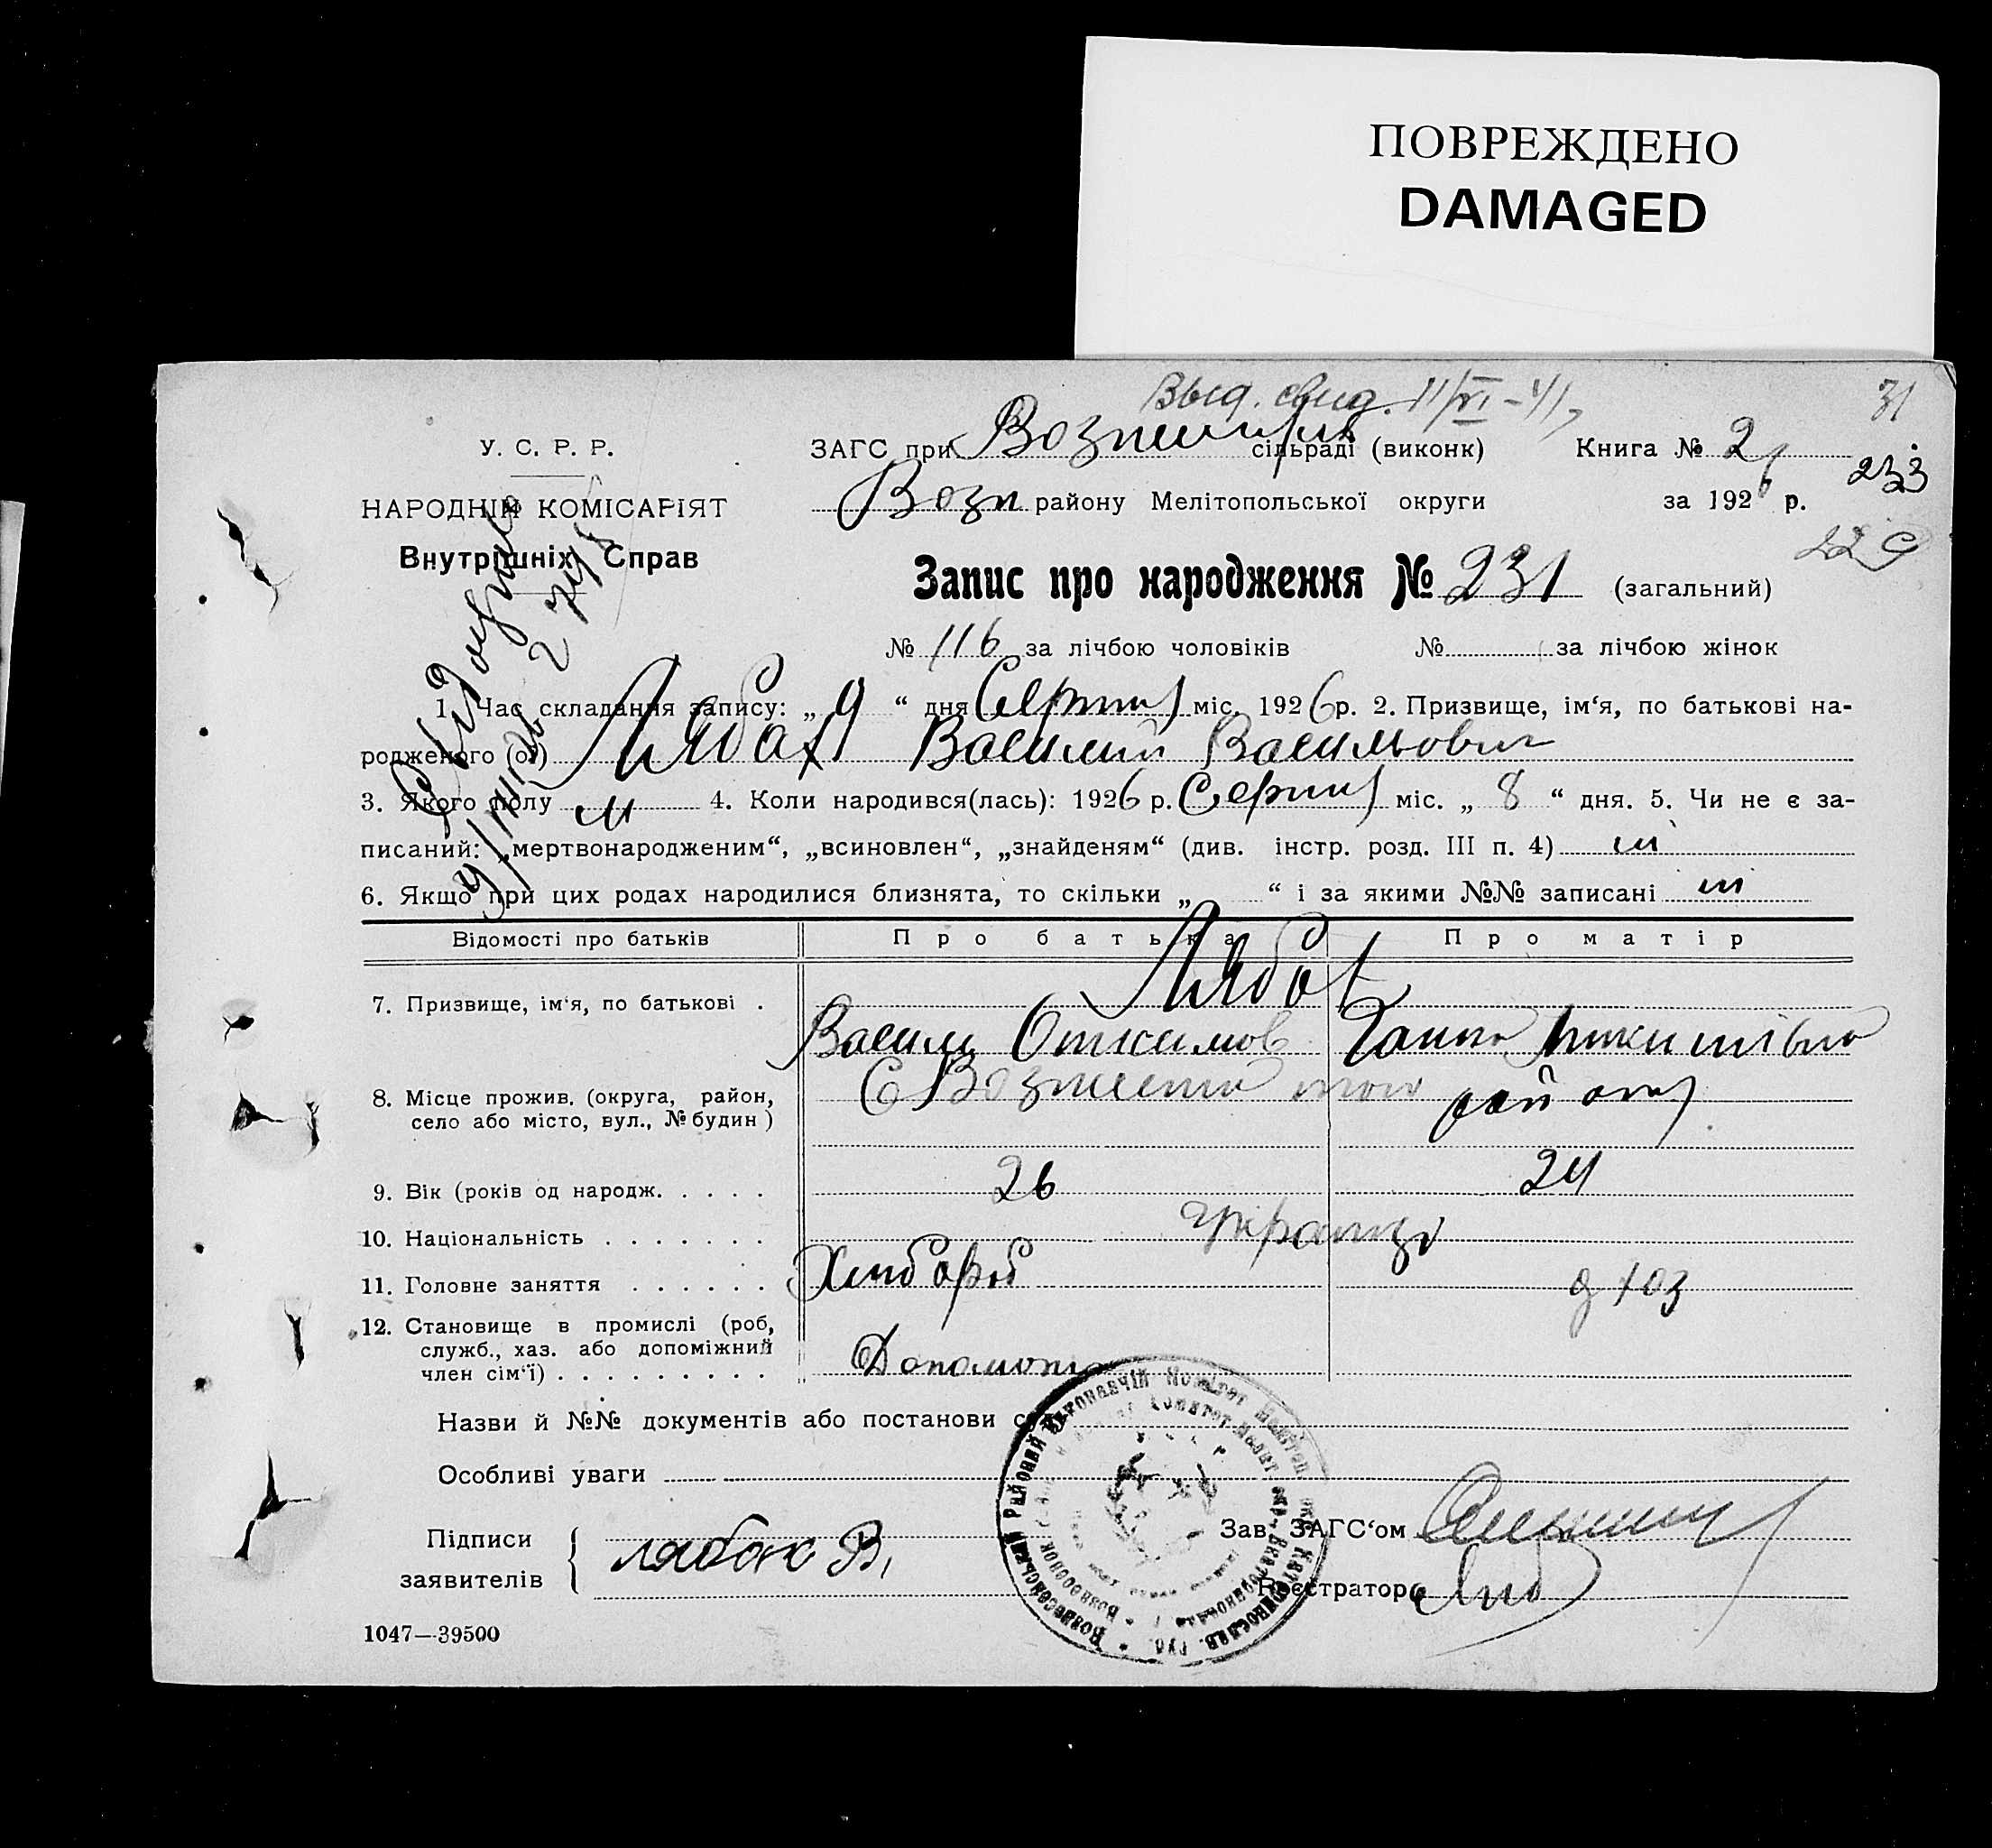 ПОВРЕЖДЕНО
DAMAGED
Выд. свид. 11/VI-41 31
У. С. Р. Р. ЗАГС при сільраді (виконк) Книга № 2
233
НАРОДНІЙ КОМІСАРІЯТ Возн району Мелітопольської округи за 1926 р.
Внутрішніх Справ
Запис про народження № 231 (загальний)
№ 116 за лічбою чоловіків № за лічбою жінок
1. Час складання запису: „ 9 “ дня Серпня міс. 1926 р. 2. Призвище, ім‘я, по батькові на-
родженого (ої) Лябах Василий Васильович
3. Якого полу м 4. Коли народився(лась): 1926 р. Серпня міс. „ 8 “ дня. 5. Чи не є за-
писаний: „мертвонародженим“, „всиновлен“, „знайденям“ (див. інстр. розд. III п. 4) ні
6. Якщо при цих родах народилися близнята, то скільки „ “ і за якими №№ записані ні
Відомості про батьків Про батька Про матір
Лябах
7. Призвище, ім‘я, по батькові .
Василь Ганна Микитівна
8. Місце прожив. (округа, район, село або місто, вул., № будин)
С Вознесенка того району
9. Вік (років од народж. . . . . 26 24
10. Національність . . . . . . . Українці
11. Головне заняття . . . . . . Хлібороб д хоз
12. Становище в промислі (роб,
служб., хаз. або допоміжний
член сім‘ї) . . . . . . . . . Допомога
Назви й №№ документів або постанови
Особливі уваги
Підписи Зав. ЗАГС‘ом
заявителів лябах В. Реєстратор
1047—39500